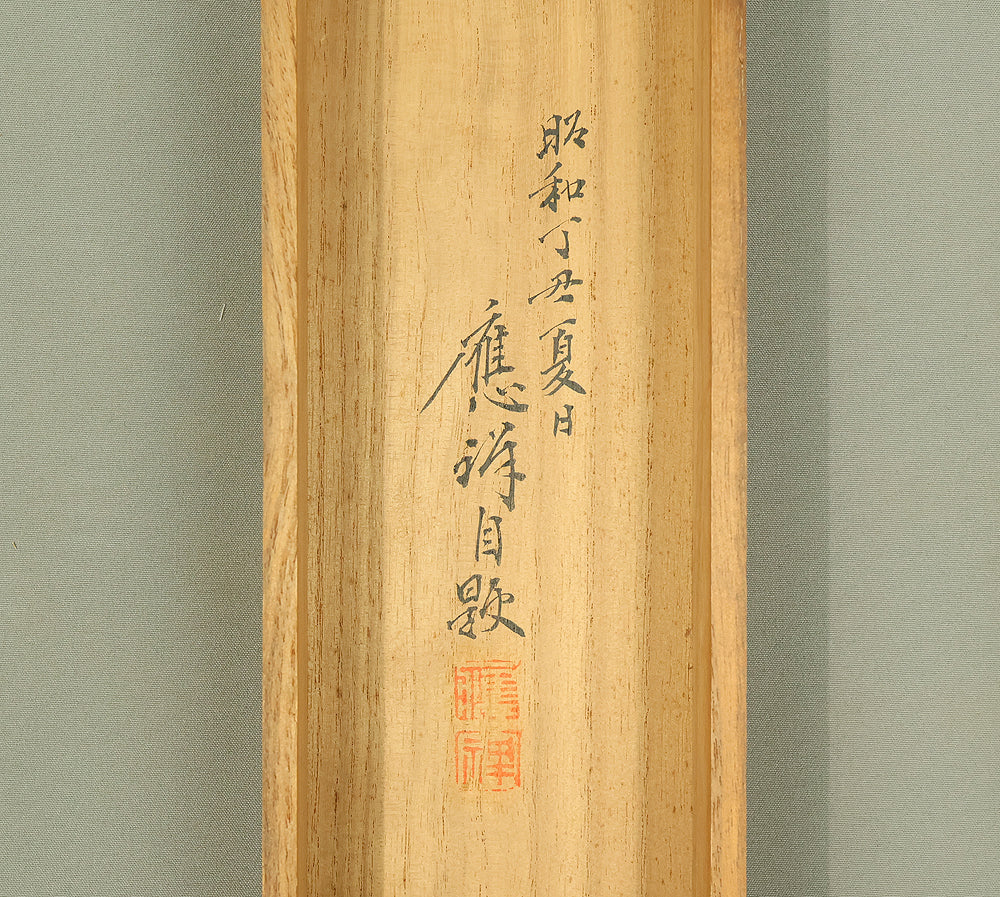 昭和丁丑夏日
應祥自題
應祥